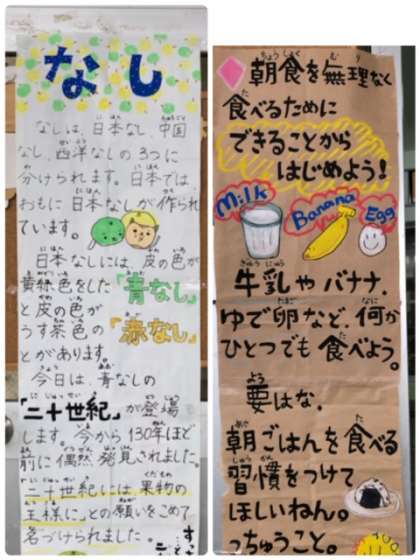 なし
なしは、日本なし、中国
なし、西洋なしの3つに
分けられます。日本では
おもに日本なしが作られ
ています。
日本なしには、皮の色が
黄緑色をした「青なし」
と皮の色が
うす茶色の「赤なし」
とがあります。
今日は、青なしの
「二十世紀」が登場
します。今から130年ほど
前に偶然発見されました。
二十世紀には「果物の
王様に」との願いをこめて
名づけられました。
朝食を無理なく
食べるために
できることから
はじめよう!
Milk
Banana
Egg
牛乳やバナナ、
ゆで卵など、何か
ひとつでも食べよう。
要はな、
朝ごはんを食べる
習慣をつけて
ほしいねん。
っちゅうこと。